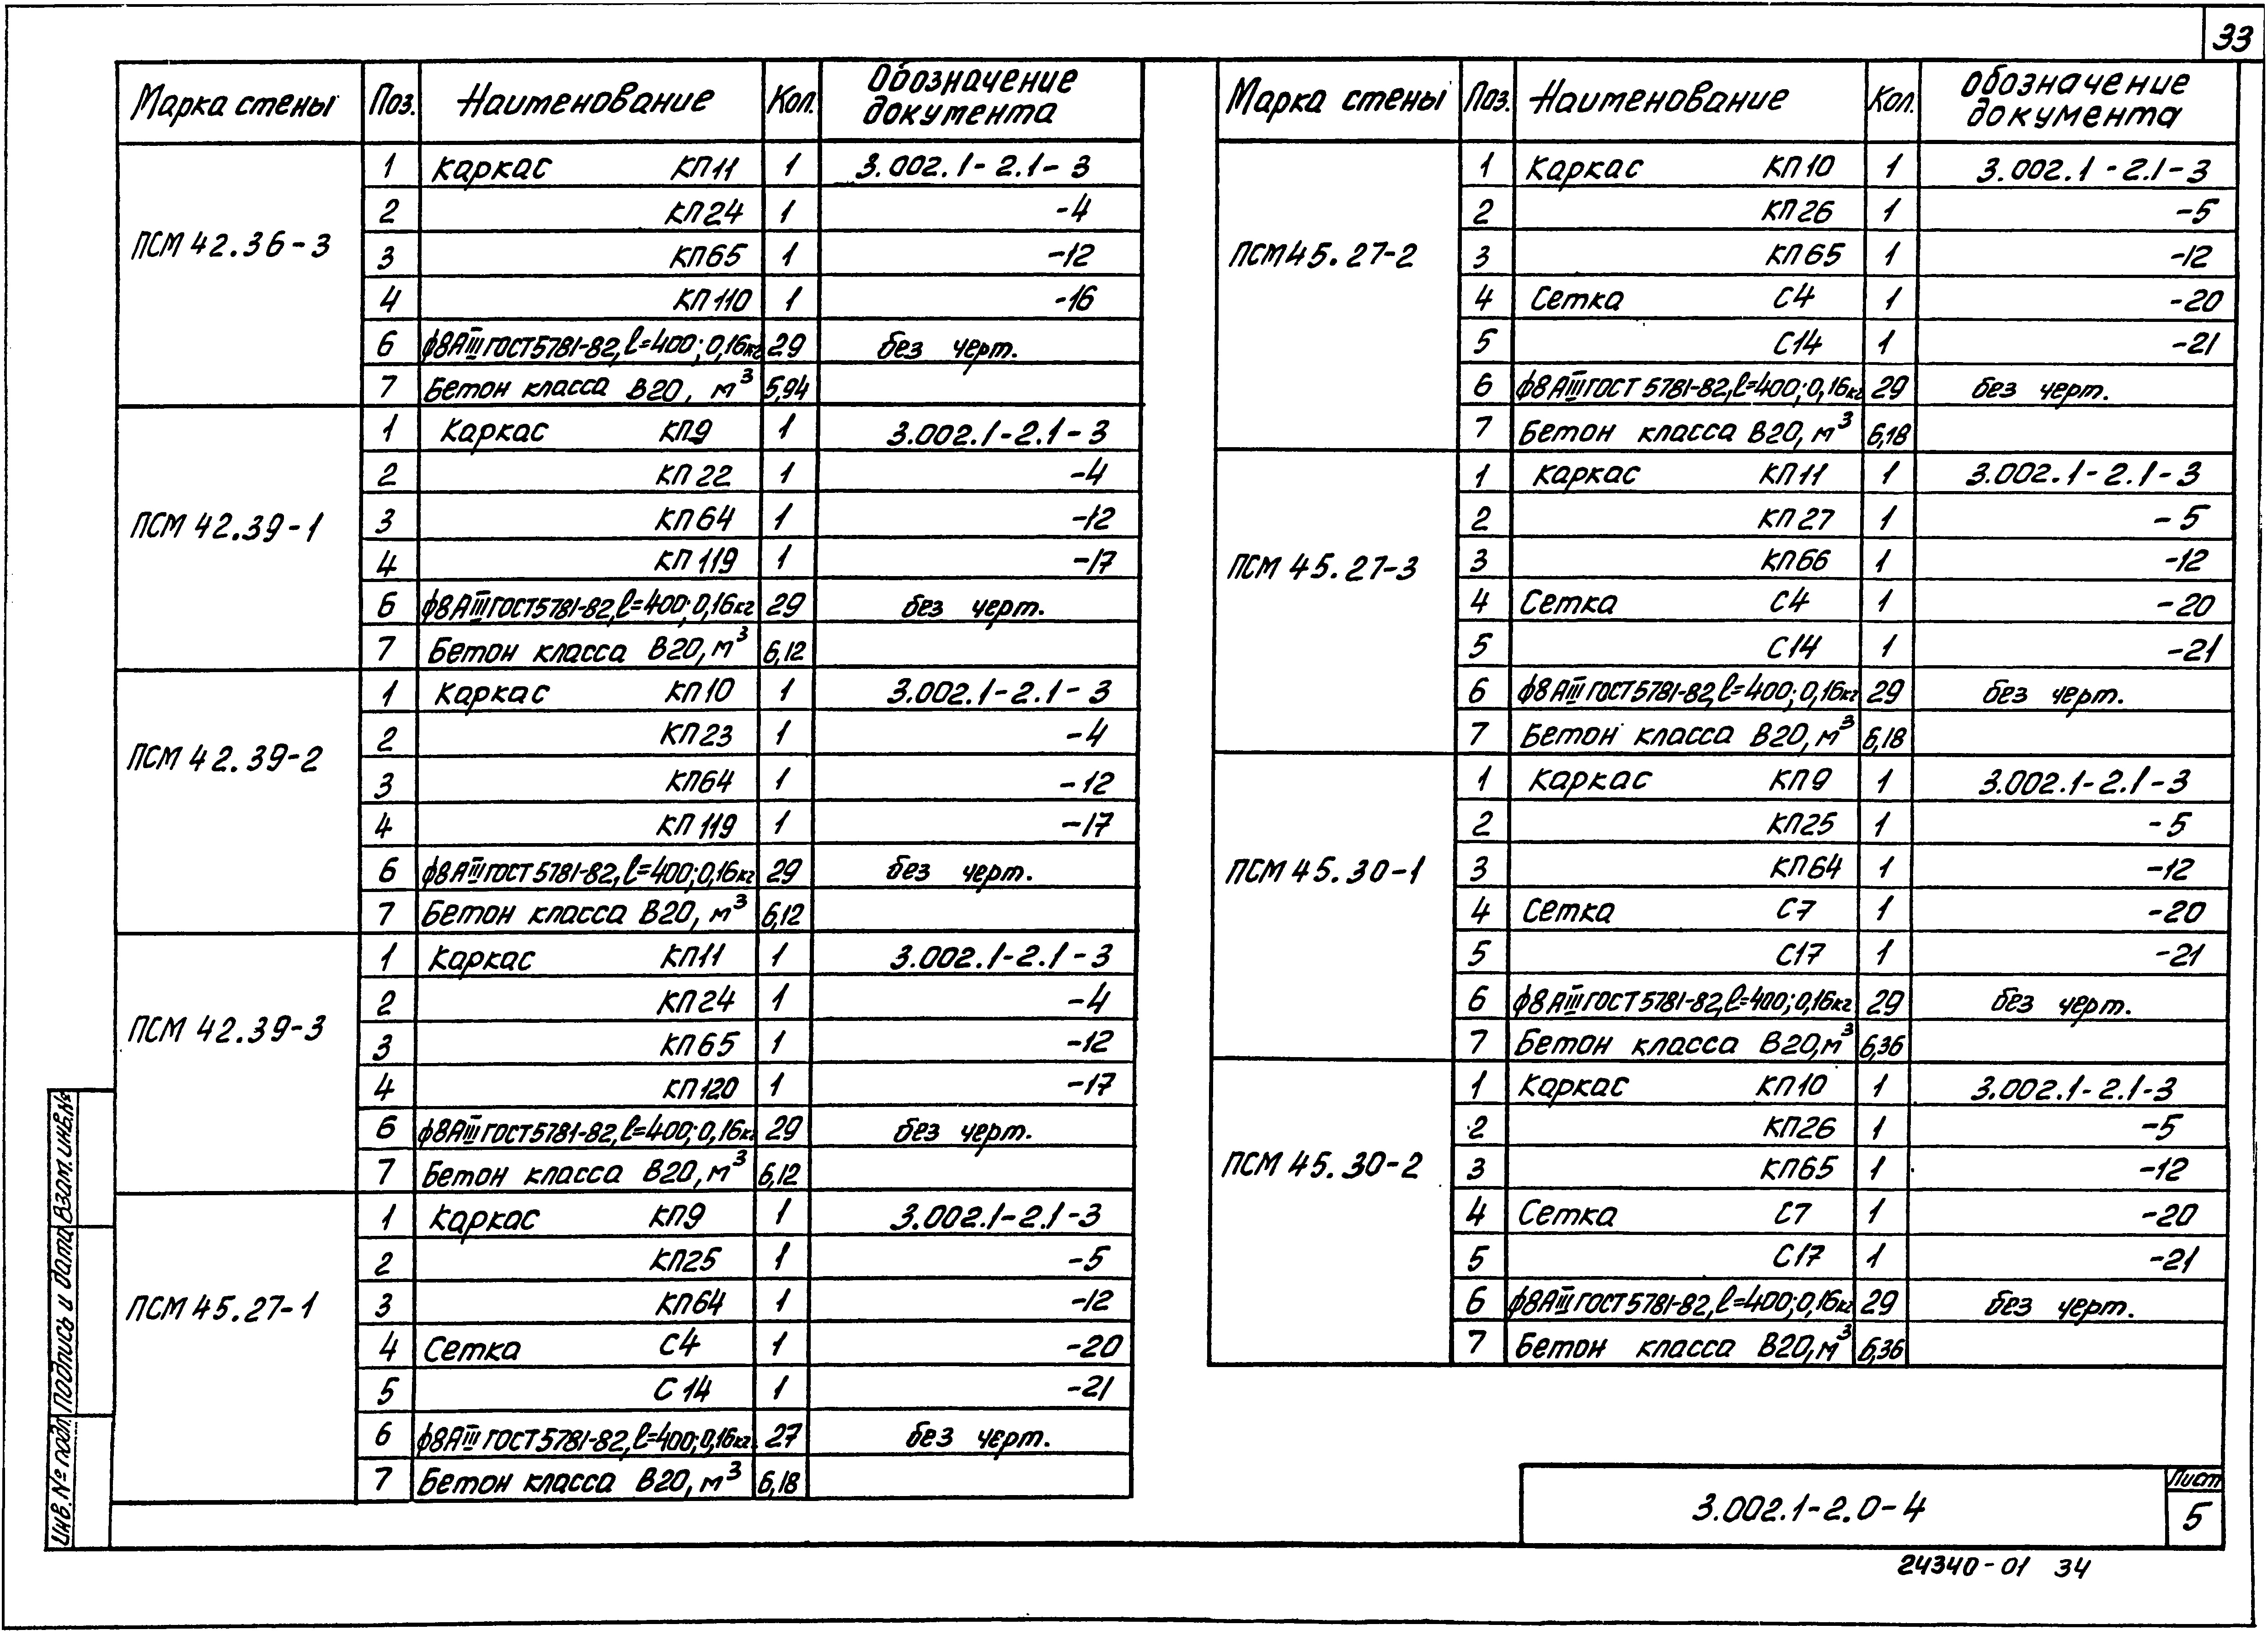 33
Марка стены Поз. Наименование Кол. Обозначение документа
ПСМ 42.36-3
1 Каркас КП11 1 3.002.1-2.1-3
2 КП24 1 -4
3 КП65 1 -12
4 КП110 1 -16
6 ф8АIII ГОСТ 5781-82, l=400; 0,16кг 29 без черт.
7 Бетон класса В20, м³ 5,94
ПСМ 42.39-1
1 Каркас КП9 1 3.002.1-2.1-3
2 КП22 1 -4
3 КП64 1 -12
4 КП119 1 -17
6 ф8АIII ГОСТ 5781-82, l=400; 0,16кг 29 без черт.
7 Бетон класса В20, м³ 6,12
ПСМ 42.39-2
1 Каркас КП10 1 3.002.1-2.1-3
2 КП23 1 -4
3 КП64 1 -12
4 КП119 1 -17
6 ф8АIII ГОСТ 5781-82, l=400; 0,16кг 29 без черт.
7 Бетон класса В20, м³ 6,12
ПСМ 42.39-3
1 Каркас КП11 1 3.002.1-2.1-3
2 КП24 1 -4
3 КП65 1 -12
4 КП120 1 -17
6 ф8АIII ГОСТ 5781-82, l=400; 0,16кг 29 без черт.
7 Бетон класса В20, м³ 6,12
ПСМ 45.27-1
1 Каркас КП9 1 3.002.1-2.1-3
2 КП25 1 -5
3 КП64 1 -12
4 Сетка С4 1 -20
5 С14 1 -21
6 ф8АIII ГОСТ 5781-82, l=400; 0,16кг 27 без черт.
7 Бетон класса В20, м³ 6,18
Марка стены Поз. Наименование Кол. Обозначение документа
ПСМ 45.27-2
1 Каркас КП10 1 3.002.1-2.1-3
2 КП26 1 -5
3 КП65 1 -12
4 Сетка С4 1 -20
5 С14 1 -21
6 ф8АIII ГОСТ 5781-82, l=400; 0,16кг 29 без черт.
7 Бетон класса В20, м³ 6,18
ПСМ 45.27-3
1 Каркас КП11 1 3.002.1-2.1-3
2 КП27 1 -5
3 КП66 1 -12
4 Сетка С4 1 -20
5 С14 1 -21
6 ф8АIII ГОСТ 5781-82, l=400; 0,16кг 29 без черт.
7 Бетон класса В20, м³ 6,18
ПСМ 45.30-1
1 Каркас КП9 1 3.002.1-2.1-3
2 КП25 1 -5
3 КП64 1 -12
4 Сетка С7 1 -20
5 С17 1 -21
6 ф8АIII ГОСТ 5781-82, l=400; 0,16кг 29 без черт.
7 Бетон класса В20, м³ 6,36
ПСМ 45.30-2
1 Каркас КП10 1 3.002.1-2.1-3
2 КП26 1 -5
3 КП65 1 -12
4 Сетка С7 1 -20
5 С17 1 -21
6 ф8АIII ГОСТ 5781-82, l=400; 0,16кг 29 без черт.
7 Бетон класса В20, м³ 6,36
Инв. № подл. Подпись и дата Взам. инв. №
3.002.1-2.0-4
Лист
5
24340-01 34